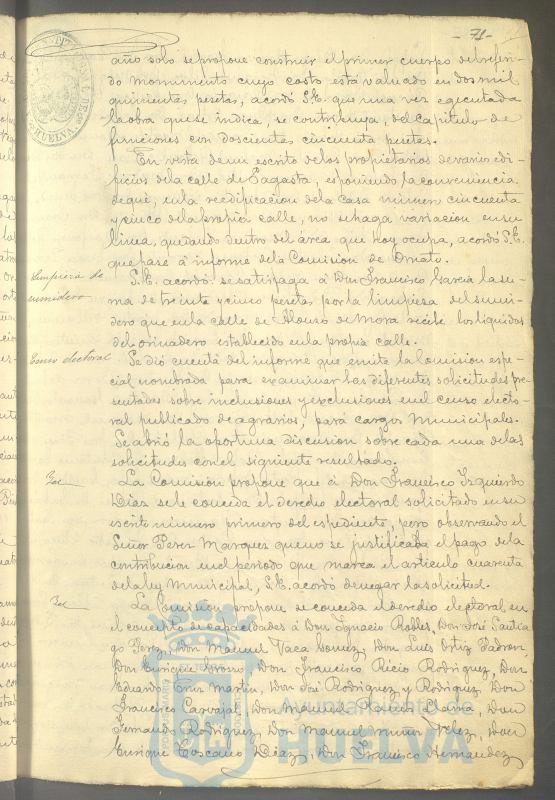 - 71 -
año solo se propone construir el primer cuerpo del referi-
do monumento cuyo costo está valuado en dos mil
quinientas pesetas, acordó S.E. que una vez ejecutada
la obra que se indica, se contribuya, del capitulo de
funciones con doscientas cincuenta pesetas.
En vista de un escrito de los propietarios de varios edi-
ficios de la calle de Sagasta, esponiendo la conveniencia
de que, en la reedificacion de la casa número cincuenta
y cinco de la propia calle, no se haga variacion en su
linea, quedando dentro del área que hoy ocupa, acordó S.E.
que pase á informe de la Comision de Ornato.
Limpieza de
sumidero
S.E. acordó: se satisfaga á Don Francisco Garcia la su-
ma de treinta y cinco pesetas por la limpiesa del sumi-
dero que en la calle de Alonso de Mora recibe los liquidos
del orinadero establecido en la propia calle.
Censo electoral
Se dió cuenta del informe que emite la Comision espe-
cial nombrada para examinar las diferentes solicitudes pre-
sentadas sobre inclusiones y esclusiones en el censo electo-
ral publicado de agrarios, para cargos municipales.
Se abrió la oportuna discusion sobre cada una de las
solicitudes con el siguiente resultado.
La Comision propone que á Don Francisco Izquierdo
Diaz se le conceda el derecho electoral solicitado en su
escrito número primero del espediente, pero observando el
Señor Perez Marquez que no se justificaba el pago de la
contribucion en el periodo que marca el articulo cuarenta
de la ley Municipal, S.E. acordó denegar la solicitud.
La Comision propone se conceda el derecho electoral, en
el concepto de capacidades á Don Ignacio Robles, Don José Santia-
go Perez, Don Manuel Vaca Gomez, Don Luis Ortiz Padron,
Don Enrique Don Francisco Recio Rodriguez, Don
Eduardo Martin, Don José Rodriguez y Rodriguez, Don
Francisco Carvajal, Don Manuel Don
Fernando Rodriguez, Don Manuel Muñoz Velez, Don
Enrique Toscano Diaz, Don Francisco Hernandez
Ayuntamiento de
HUELVA